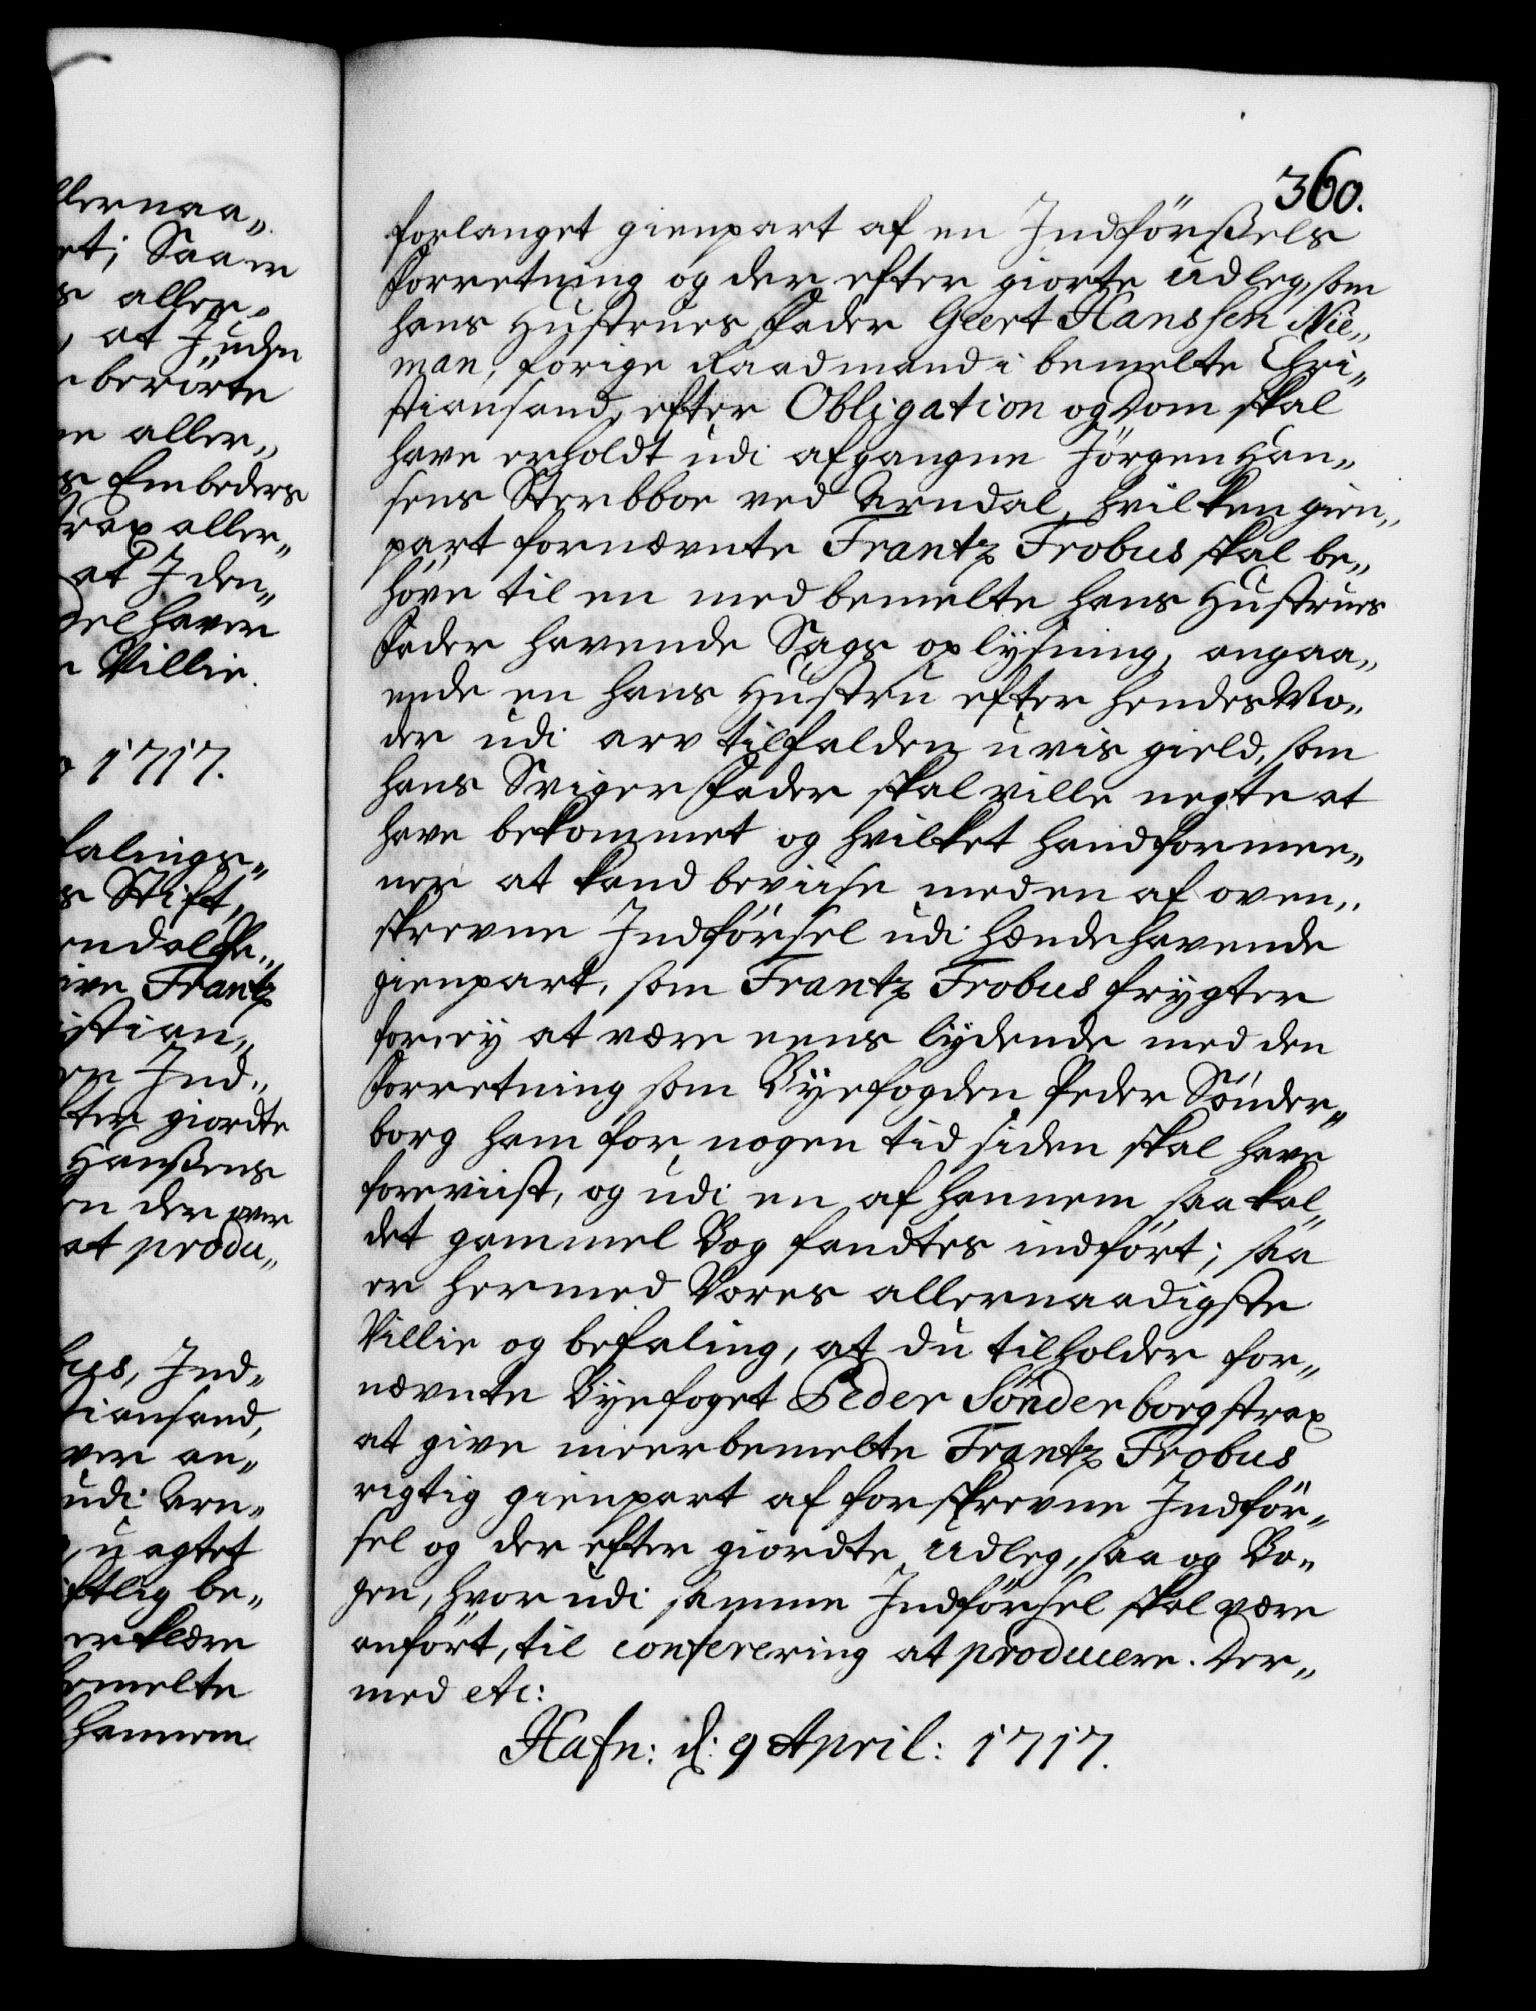 llernaa„
et; Saa er
s aller„
, at I uden
berörte
ne aller„
s Embeders
trax aller„
at I den„
del haver
e Villie.
1717.
falings„
s Stift„
endal Pe„
ive Frantz
istian„
en Ind„
fter giordte
Hanßens
en der over
at produ„
bus, Ind„
tiansand,
ver an„
udi Arn„
, uagtet
iftlig be„
erklære
bemelte
hannem
360.
forlanget gienpart af en Indförßels
Forretning og der efter giorte Udleg, som
hans Hustrues Fader Geert Hanssen Nie„
man, forige Raadmand i bemelte Chri„
stiansand, efter Obligation og Dom skal
have erholdt udi afgangne Jörgen Han„
sens Sterbboe ved Arndal, hvilken gien„
part fornævnte Frantz Frobus skal be„
höve til en med bemelte hans Hustrues
Fader havende Sags oplysning, angaa„
ende en hans Hustru efter hendes Mo„
der udi arv tilfalden uvis gield, som
hans Sviger Fader skal ville negte at
have bekommet og hvilket hand formee„
ner at kand beviise med en af oven„
skrevne Indförsel udi hændehavende
gienpart, som Frantz Frobus frygter
for ey at være eens lydende med den
Forretning som Byefogden Peder Sönder„
borg ham for nogen tid siden skal have
foreviist, og udi en af hannem saa kal„
det gammel Bog fandtes indfört; saa
er hermed Vores allernaadigste
Villie og befaling, at du tilholder for„
nævnte Byefoget Peder Sönderborg strax
at give meerbemelte Frantz Frobus
rigtig gienpart af forskrevne Indför„
sel og der efter giordte Udleg, saa og Bo„
gen, hvor udi samme Indförsel skal være
anfört, til conferering at producere. Der„
med etc:
Hafn: d: 9 April: 1717.